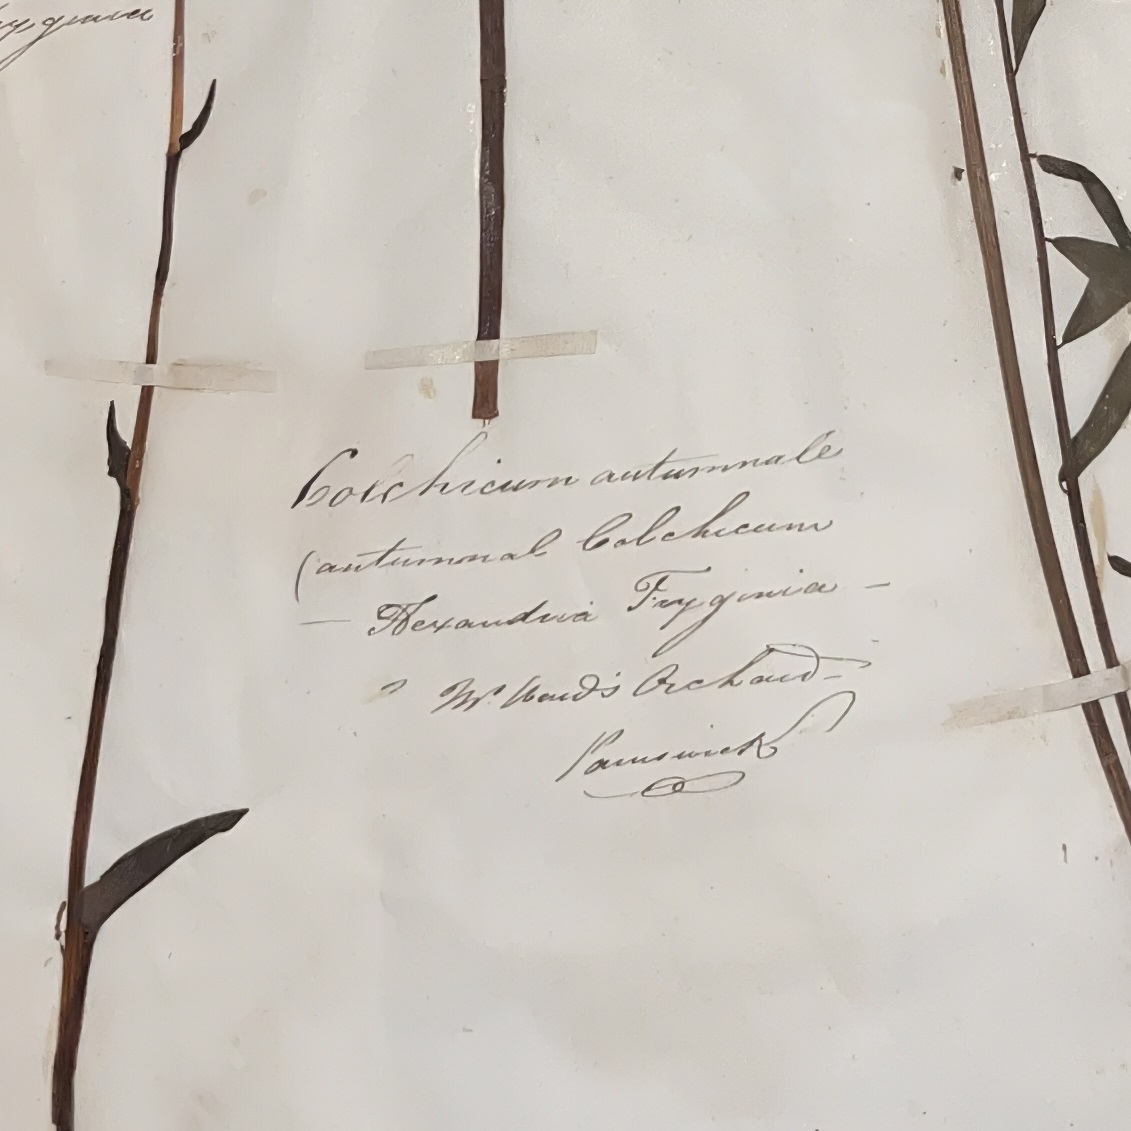 Trygynia
Colchicum autumnale
(autumnal Colchicum
— Hexandria Trygynia —
Mr Ward's Orchard —
Painswick